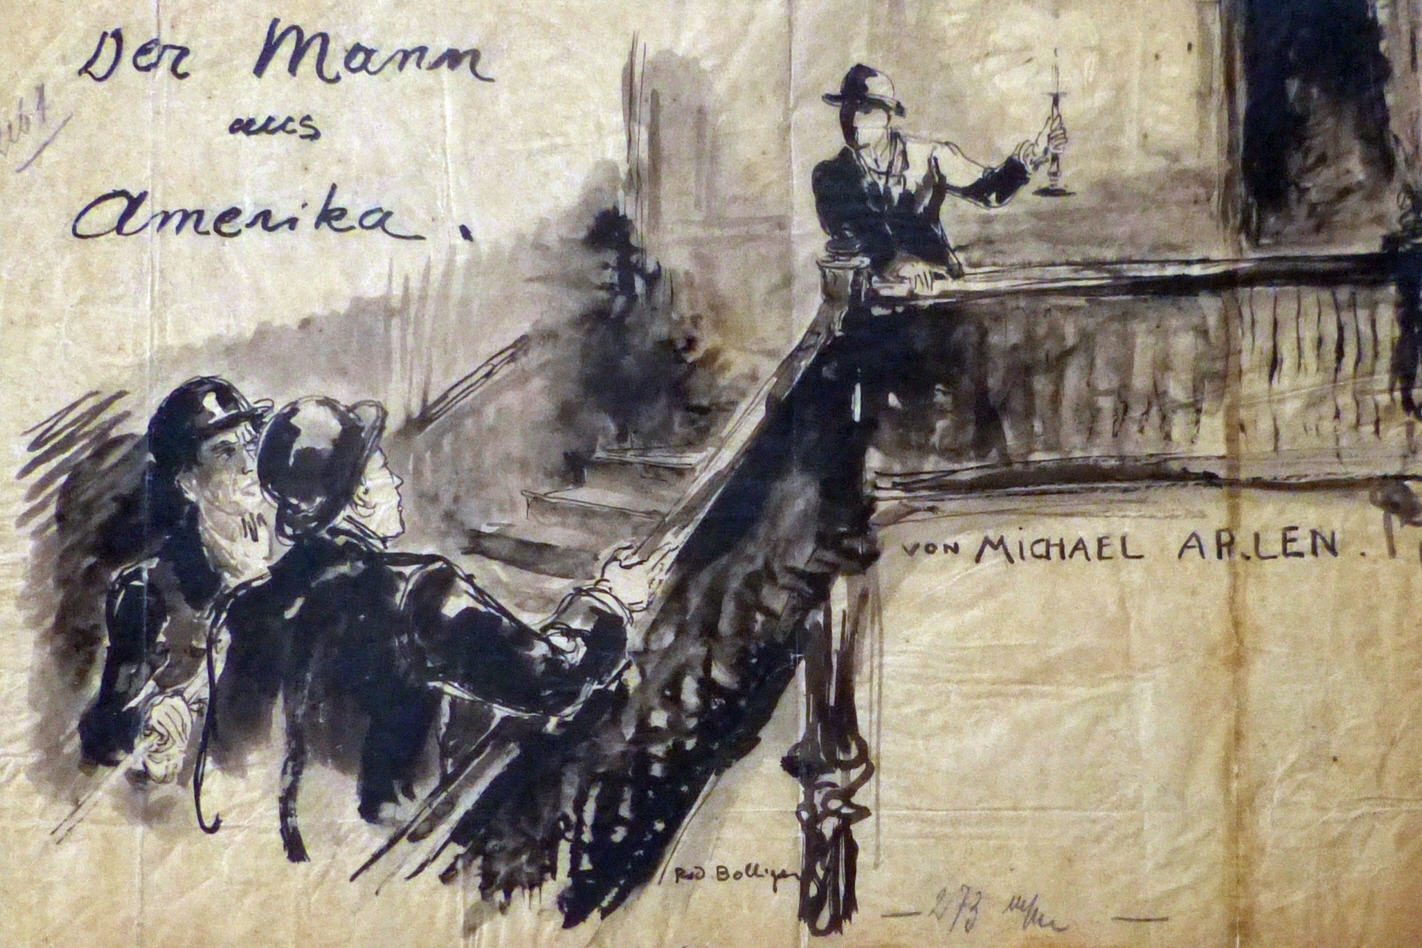 Der Mann
aus
Amerika.
VON MICHAEL ARLEN.
Rod Bolliger
273